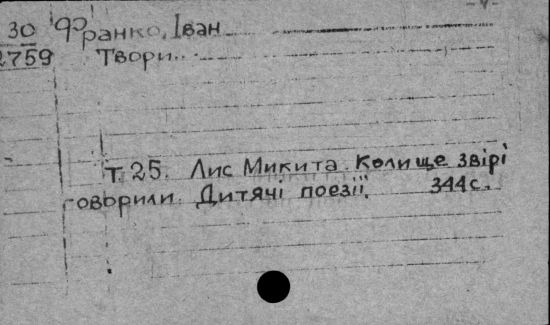 30 Франко, Іван
2759 Твори..
Т. 25. Лис Микита. Коли ще звірі
говорили. Дитячі поезії. 344 с.